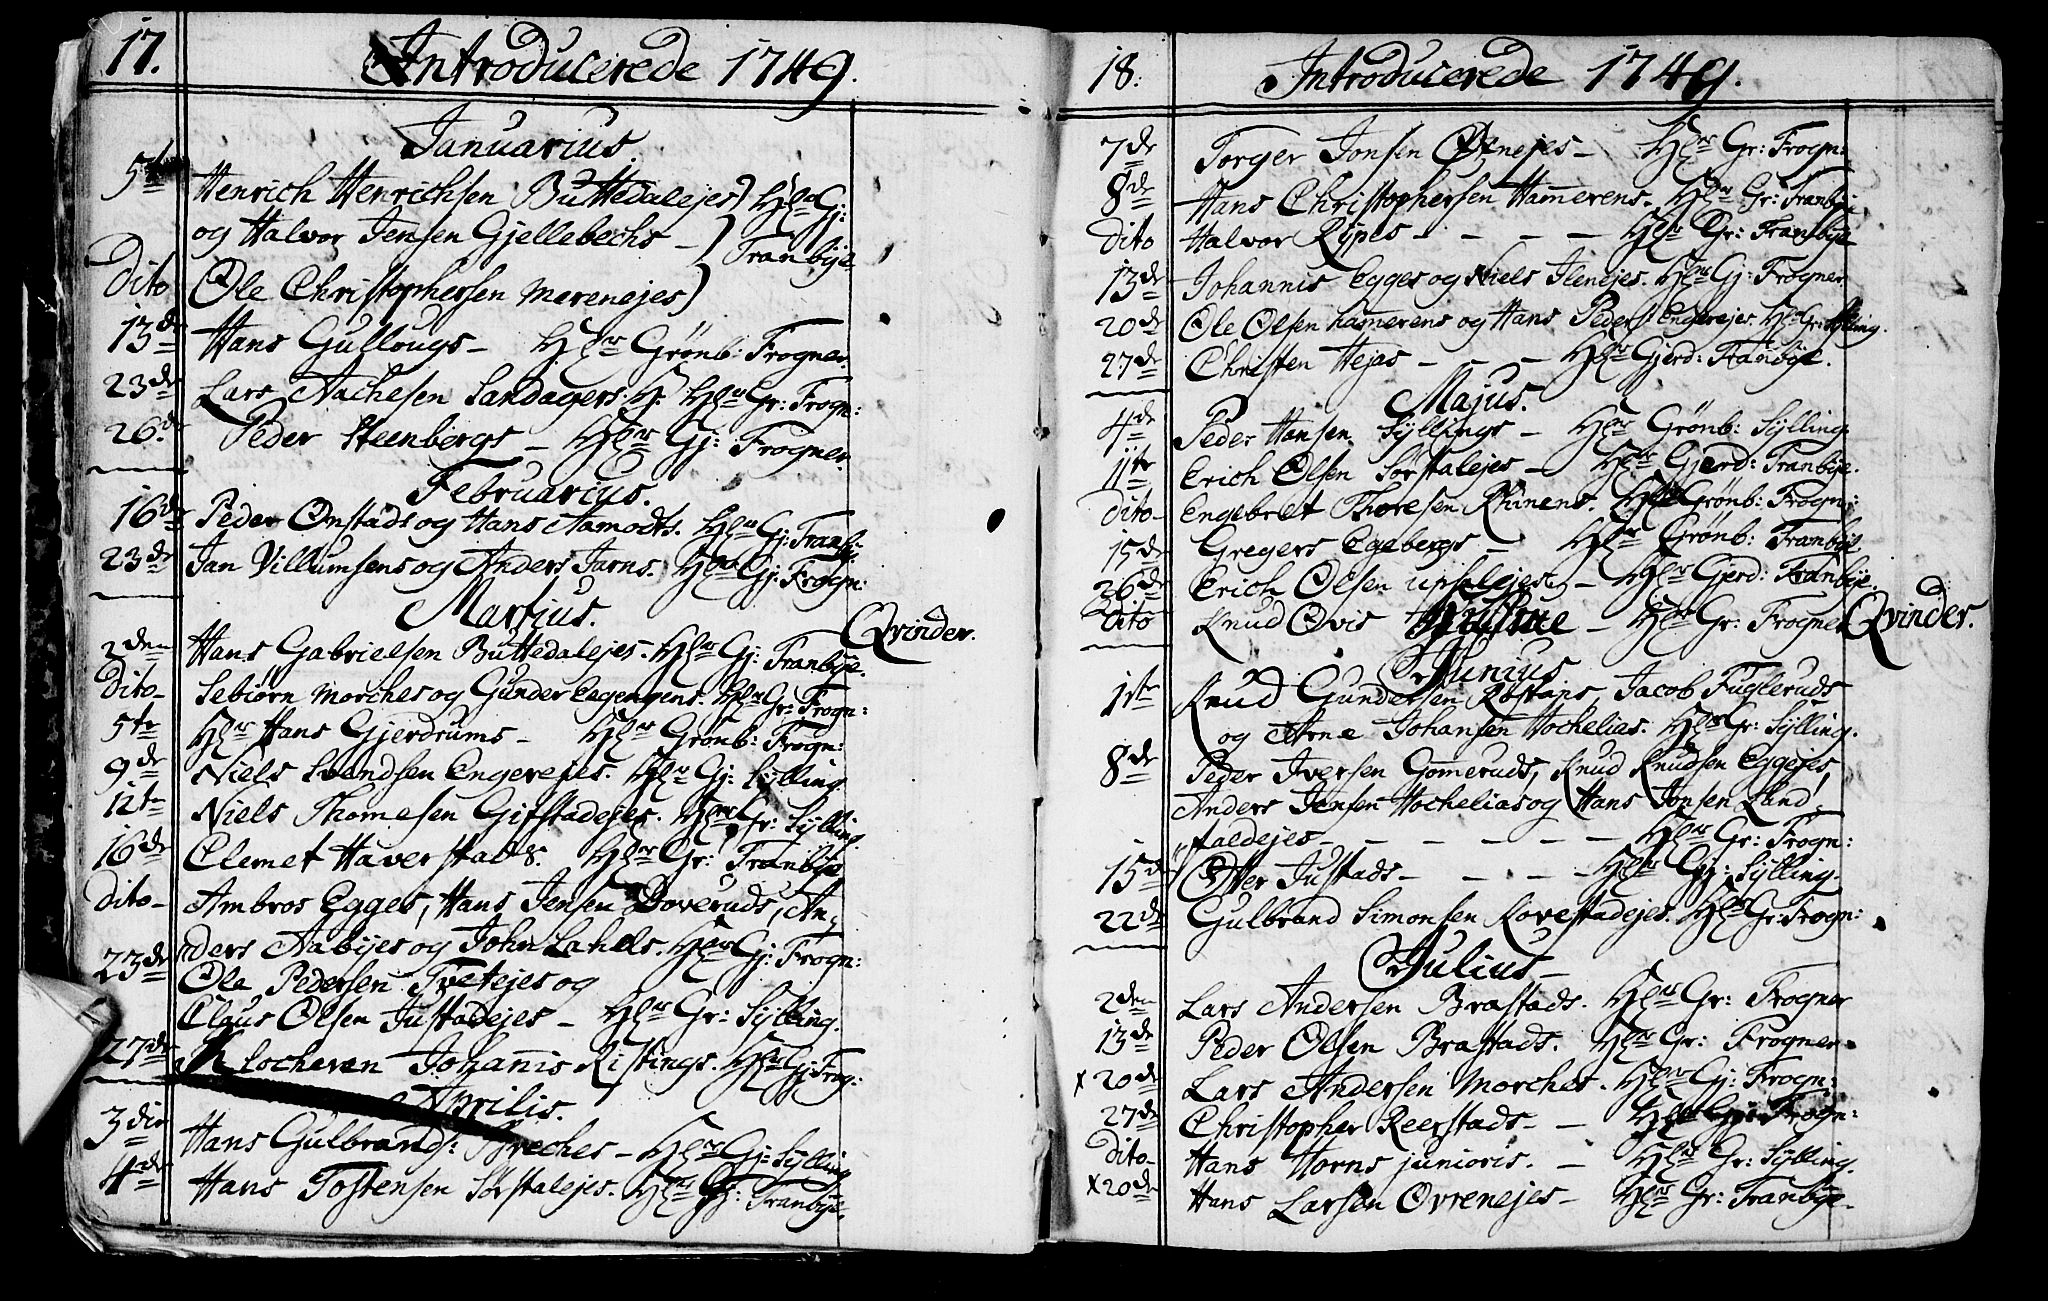 17.
Introducerede 1749.
Januarius.
5te Henrich Henrichsen Buttedalejes) Hr Gj:
og Halvor Jensen Gjellebechs -) Tranbye
Dito Ole Christophersen Merenejes)
13de Hans Gullougs - Hr Grönb: Frogner.
23de Lars Aachesen Sandagers. Hr Gr: Frogn:
26.de Peder Steenbergs - Hr Gj: Frogner.
Februarius.
16de Peder Onstads og Hans Aamodts. Hr Gj: Tranb:
23de Jan Villumsens og Anders Jarns. Hr Gj: Frogn:
Martius.
Qvinder.
2den Hans Gabrielsen Buttedalejes. Hr Gj: Tranbye.
Dito- Sebiörn Morches og Gunder Eegengens. Hr Gr: Frogn:
5te Hr Hans Gjerdrums - Hr Grönb: Frogn:
9de Niels Svendsen Engerejes. Hr Gj: Sylling.
12te Niels Thomesen Gifstadejes. Hr Gr: Sylling.
16de Clemet Haverstads. Hr Gr: Tranbye
Dito- Ambros Egges, Hans Jensen Doveruds, An-
ders Aabyes og John Lahells. Hr Gj: Frogn:
23de Ole Pedersen Tvetejes og
Claus Olsen Justadejes - Hr Gr: Sylling.
27de Klocheren Johanis Ristings. Hr Gj: Frog:
Aprilis.
3die Hans Gulbrands: Breches - Hr Gj: Sylling
4de Hans Tostensen Sörstalejes. Hr Gj: Tranbye.
18.
Introducerede 1749.
7de Torger Jonsen Ofnejes - Hr Gr: Frogn:
8de Hans Christophersen Hamerens. Hr Gr: Tranbye
Dito Halvor Rypes - - - - Hr Gr: Tranbye
13de Johannis Egges og Niels Ilenejes. Hr Gj: Frogner
20de Ole Olsen hamerens og Hans Peders: Engerejes. Hr Gr: Sylling.
27de Christen Hejas - - - Hr Gjerd: Tranbye.
Majus.
4de Peder Hansen Syllings - Hr Grönb: Sylling
11te Erich Olsen Sörstalejes - Hr Gjerd: Tranbye.
Dito- Engebret Thoresen Rhinens. Hr Grönb: Frogn:
15de Gregers Egebergs - Hr Grönb: Tranbye
26de Erich Olsen upsalejes - Hr Gjerd: Tranbye.
Dito Knud Qvis Hustrue - Hr Gr: Frogner
Qvinder.
Junius
1ste Knud Gundersen Röstans, Jacob Fugleruds
og Arne Johansen Hochelias. Hr Gr: Sylling.
8de Peder Iversen Gomeruds, Knud Knudsen Eggejes,
Anders Jensen Hochelias og Hans Jonsen Lind-
staldejes - - - - - Hr Gr: Frogn:
15de Otter Justads - - - - Hr Gj: Sylling.
22de Gulbrand Simonsen Rovestadejes. Hr Gr: Frogn:
Julius
2den Lars Andersen Brastads. Hr Gr: Frogner
13de Peder Olsen Brastads. Hr Gr: Frogner
x 20de Lars Andersen Morches. Hr Gj: Frogn:
27de Christopher Reerstads - - Hr Gr: Frogn:
Dito- Hans Horns junioris. - Hr Gr: Sylling.
x 20de Hans Larsen Ovrenejes - Hr Gr: Tranbye.